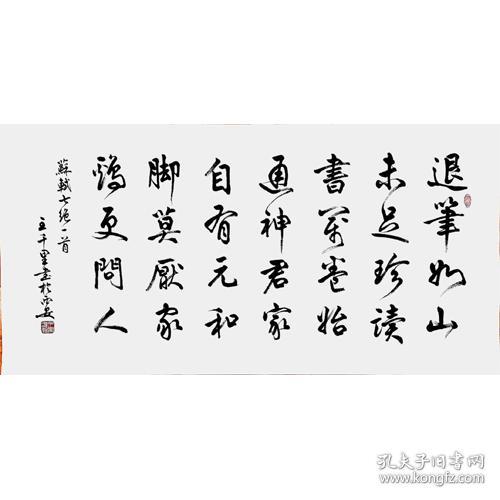 退筆如山
未足珍讀
書萬卷始
通神君家
自有元和
脚莫厭家
鷄更問人
蘇軾七絕一首
王千里書於西安
孔夫子旧书网
www.kongfz.com